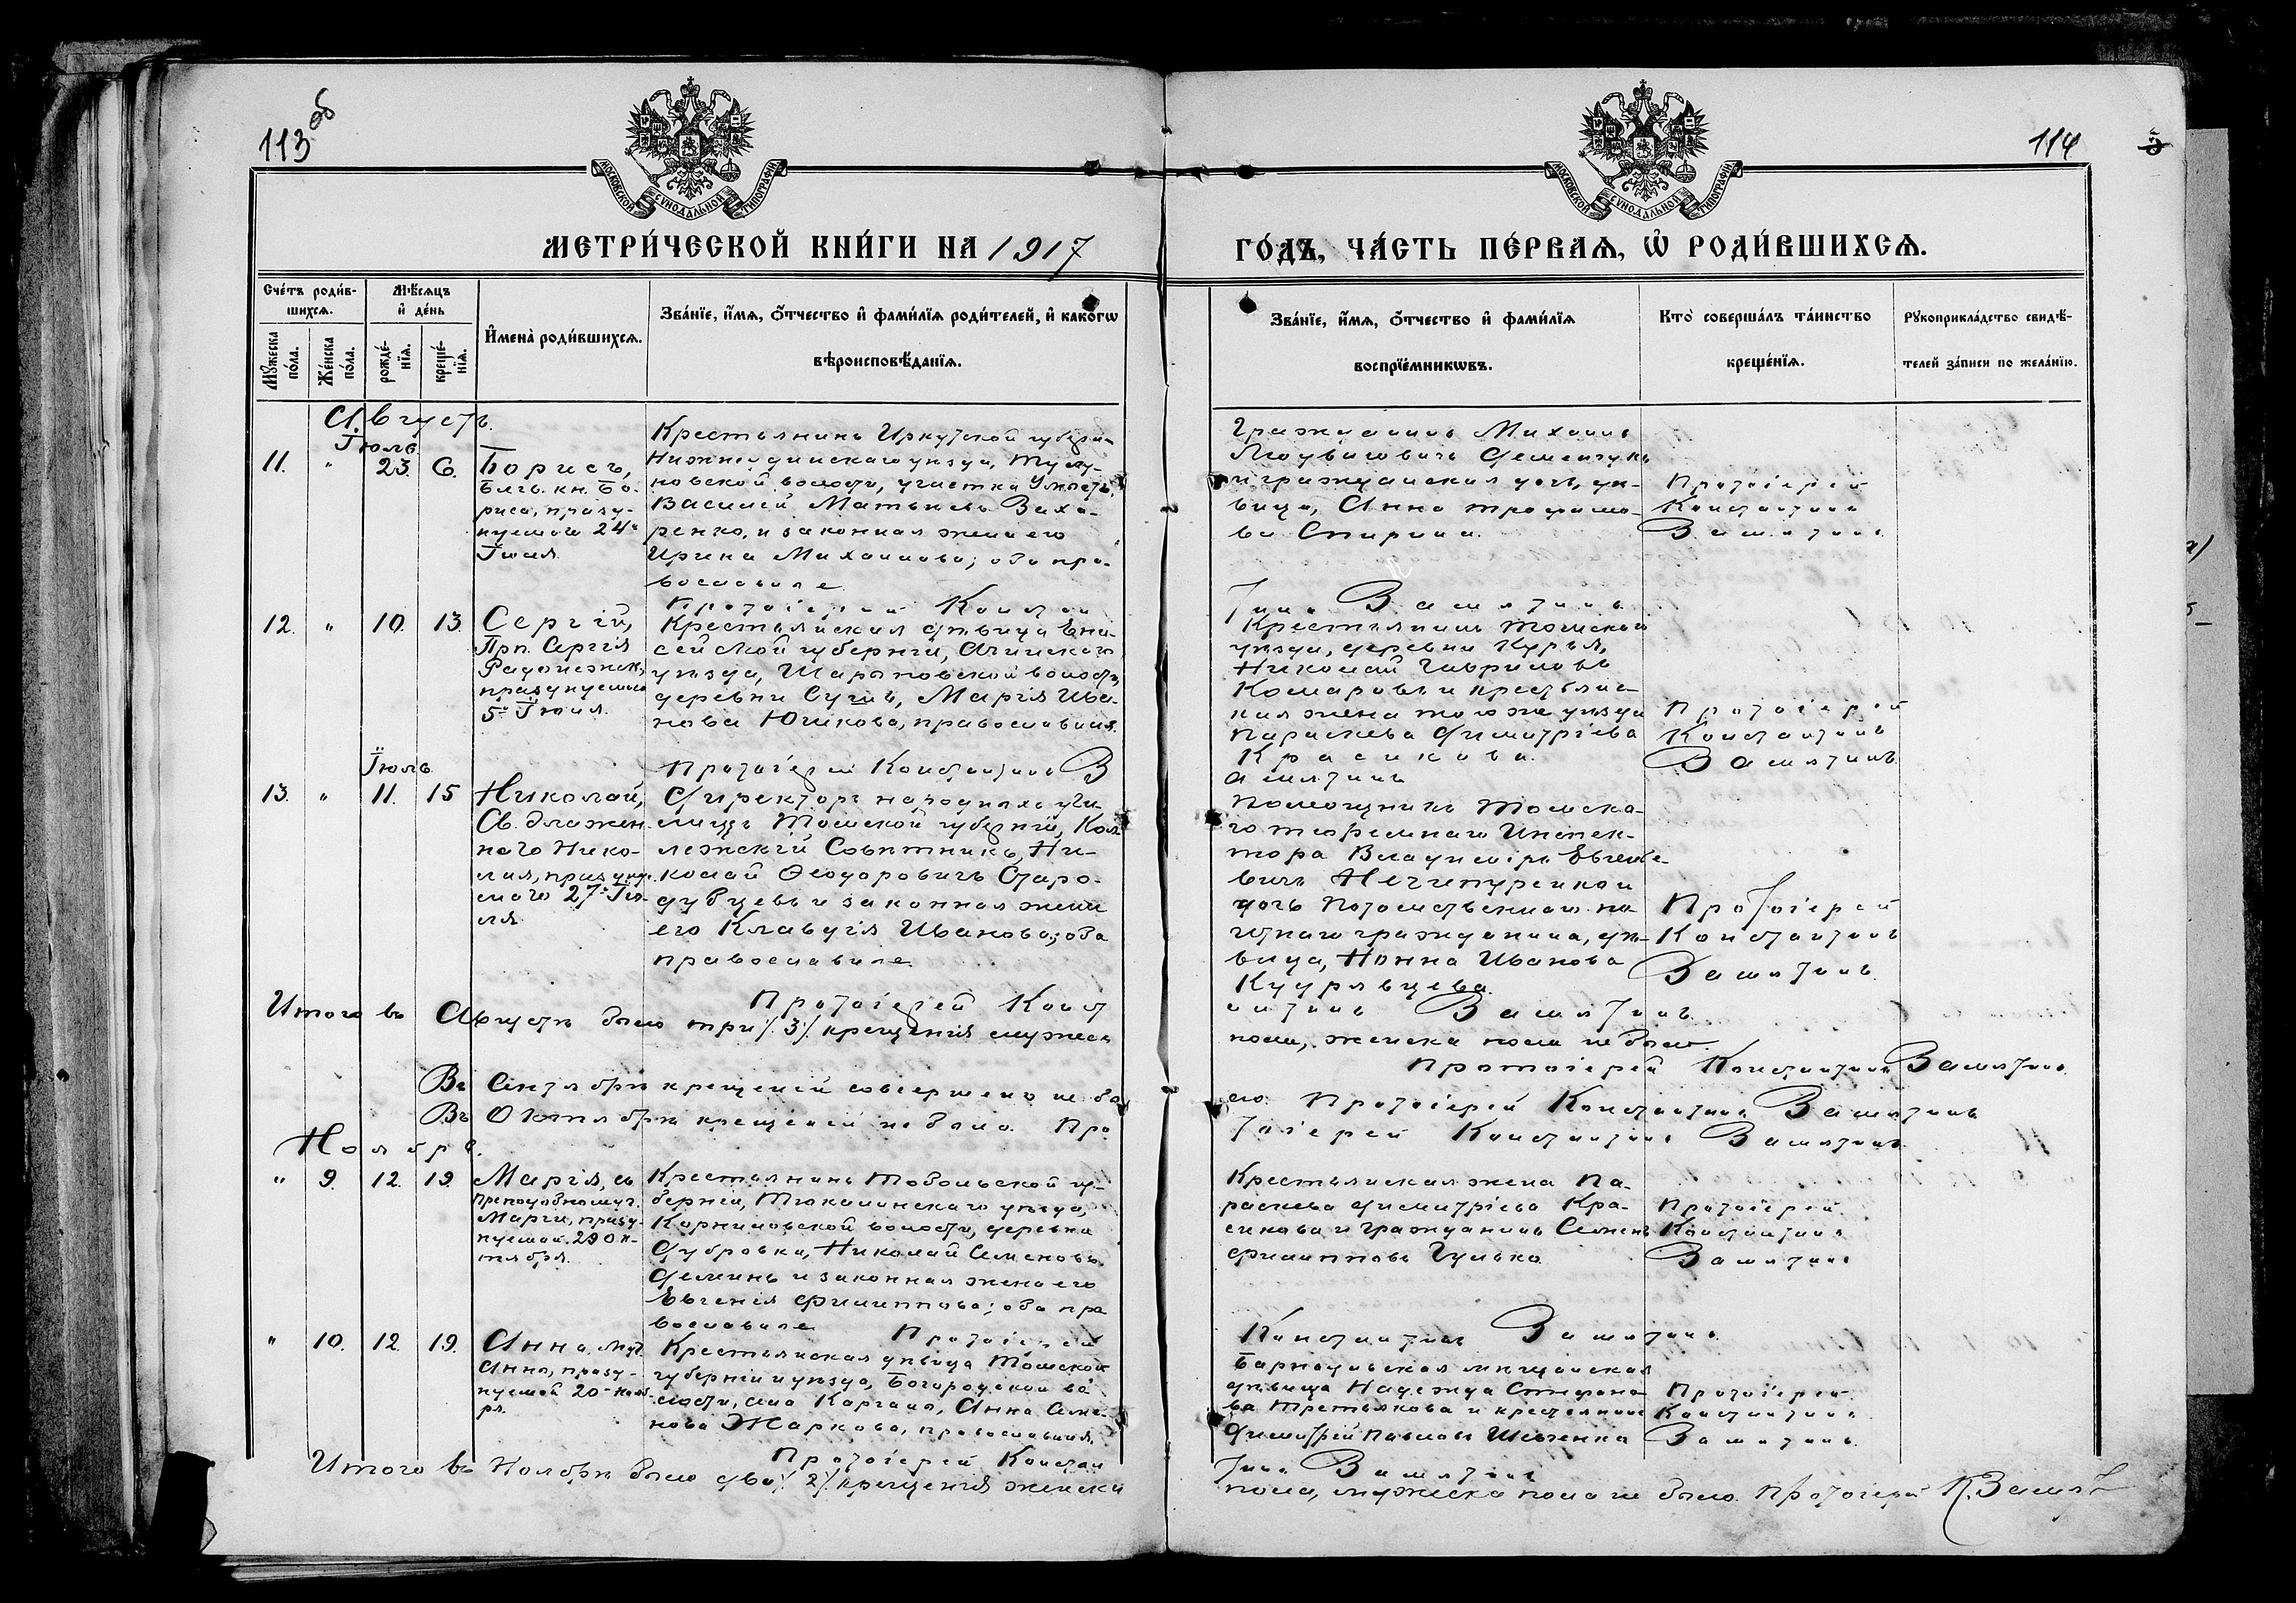 113 об
114
МОСКОВСКОЙ СѴНОДАЛЬНОЙ ТИПОГРАФІИ
МОСКОВСКОЙ СѴНОДАЛЬНОЙ ТИПОГРАФІИ
МЕТРИ́ЧЕСКОЙ КНИ́ГИ НА 1917
ГО́ДЪ, ЧА́СТЬ ПЕ́РВАѦ, Ѽ РОДИ́ВШИХСѦ.
Сче́тъ роди́в-
шихсѧ.
Мѣ́сѧцъ
и҆ де́нь
Мꙋ́жеска по́ла.
Же́нска по́ла.
рожде́-
нїѧ.
креще́-
нїѧ.
И҆мена̀ роди́вшихсѧ.
Зва́нїе, и҆́мѧ, ѻ҆́тчество и҆ фами́лїѧ роди́телей, и҆ како́гѡ
вѣроисповѣ́данїѧ.
Зва́нїе, и҆́мѧ, ѻ҆́тчество и҆ фами́лїѧ
воспрїе́мникѡвъ.
Кто̀ соверша́лъ та́инство
креще́нїѧ.
Рꙋкоприкла́дство свидѣ́-
телей за́писи по жела́нїю.
Августъ.
Іюль
11. " 23. 6.
Борисъ,
Блгв. кн. Бо-
риса, празд-
нуемаго 24го
Іюля
Крестьянинъ Иркутской губерн-
Нижнеудинскаго уѣзда, Тулу-
новской волости, участка
Василій Матвѣевъ Заха-
ренко, и законная жена его
Ирина Михаилова; оба пра-
вославные
Гражданинъ Михаилъ
Людвиговичъ
и гражданская дочь, дѣ-
вица, Анна Трофимо-
ва Спирина.
Протоіерей
Константинъ
Замятинъ.
Протоіерей Констан
тинъ Замятинъ
12. " 10. 13.
Сергій,
Прп. Сергія
Радонежск,
празднуемаго
5го Іюля.
Крестьянская дѣвица Ени-
сейской губерніи, Ачинскаго
уѣзда, Шарыповской волости,
деревни Сучъ, Марія Ива-
нова Юшкова, православная.
Крестьянинъ Томскаго
уѣзда, деревни Курья,
Николай Гавриловъ
Комаровъ и крестьянс-
кая жена того же уѣзда
Параскева Димитріева
Красикова.
Протоіерей
Константинъ
Замятинъ
Протоіерей Константинъ З
амятинъ
Іюль
13. " 11. 15
Николай,
Св. блажен-
наго Нико-
лая, праздну-
емаго 27го Ію-
ля
Директоръ народныхъ учи-
лищъ Томской губерніи, Кол-
лежскій Совѣтникъ, Ни-
колай Ѳеодоровичъ Старо-
дубцевъ и законная жена
его Клавдія Иванова; оба
православные
Помощникъ Томска-
го тюремнаго Инспек-
тора Владиміръ Евгенье-
вичъ Нечипуренко и
дочь Потомственнаго по-
четнаго гражданина, дѣ-
вица, Нонна Иванова
Кудрявцева.
Протоіерей
Константинъ
Замятинъ.
Протоіерей Конст
антинъ Замятинъ.
Итого въ Августѣ было три /3/ крещенія мужеска
пола, женска пола не было
Протоіерей Константинъ Замятинъ.
Въ Сентябрѣ крещеній совершено не бы
ло. Протоіерей Константинъ Замятинъ
Въ Октябрѣ крещеній не было. Про
тоіерей Константинъ Замятинъ
Ноябрь.
" 9. 12. 19.
Марія, въ
Преподобномуч.
Маріи, празд-
нуемой 29 Ок-
тября.
Крестьянинъ Тобольской гу-
берніи, Тюкалинскаго уѣзда,
Корниловской волости, деревни
Дубровки, Николай Семеновъ
Деминъ и законная жена его
Евгенія Филиппова; оба пра
вославные
Крестьянская жена Па-
раскева Димитріева Кра-
сикова и гражданинъ Семенъ
Филипповъ Гулько.
Протоіерей
Константинъ
Замятинъ
Протоіерей
Константинъ Замятинъ.
" 10. 12. 19.
Анна. Муч.
Анна, празд-
нуемой 20го Нояб-
ря.
Крестьянская дѣвица Томской
губерніи и уѣзда, Богородской во-
лости, села Каргала, Анна Семе-
нова Жаркова, православная,
Барнаульская мѣщанская
дѣвица Надежда Стефано-
ва Третьякова и крестьянинъ
Димитрій Павловъ Шевченко
Протоіерей
Константинъ
Замятинъ.
Протоіерей Констан
тинъ Замятинъ
Итого въ Ноябрѣ было два /2/ крещенія женска
пола, мужеска пола не было. Протоіерей К. Замят